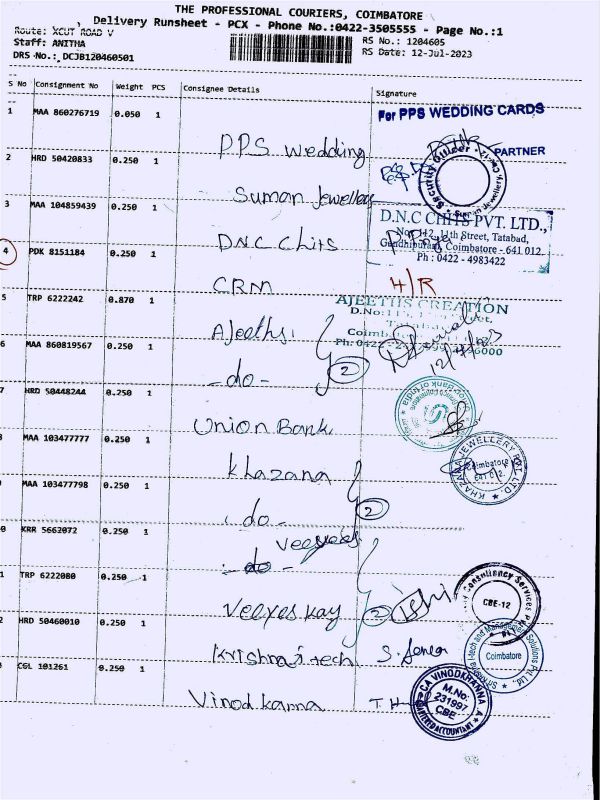 THE PROFESSIONAL COURIERS, COIMBATORE
Delivery Runsheet - PCX - Phone No.:0422-3505555 - Page No.:1
Route: XCUT ROAD V
RS No.: 1204605
Staff: ANITHA
RS Date: 12-Jul-2023
DRS No.: DCJB120460501
S No Consignment No Weight PCS Consignee Details Signature
1 MAA 860276719 0.050 1 PPS Wedding
For PPS WEDDING CARDS
PARTNER
2 HRD 50420833 0.250 1 Suman Jewellers
3 MAA 104859439 0.250 1 D.N.C Chits
D.N.C CHITS PVT. LTD.,
No. 112, 11th Street, Tatabad,
Gandhipuram, Coimbatore - 641 012.
Ph : 0422 - 4983422
4 PDK 8151184 0.250 1 CRM H/R
5 TRP 6222242 0.870 1 Ajeeths
AJEETHS CREATION
6 MAA 860819567 0.250 1 - do - 2
7 HRD 50448244 0.250 1 Union Bank
MAA 103477777 0.250 1 Khazana
KHAZANA JEWELLERY PVT. LTD.
Coimbatore
MAA 103477798 0.250 1 - do - 2
0 KRR 5662072 0.250 1 - do - Veeyes
1 TRP 6222080 0.250 1 Veeyes Kay 2
Consultancy Services
CBE-12
2 HRD 50460010 0.250 1 Krishnaji tech
Coimbatore
CGL 101261 0.250 1 Vinod Kanna
CA VINODKHANNA .A
M.No:
231997
CBE
CHARTERED ACCOUNTANT